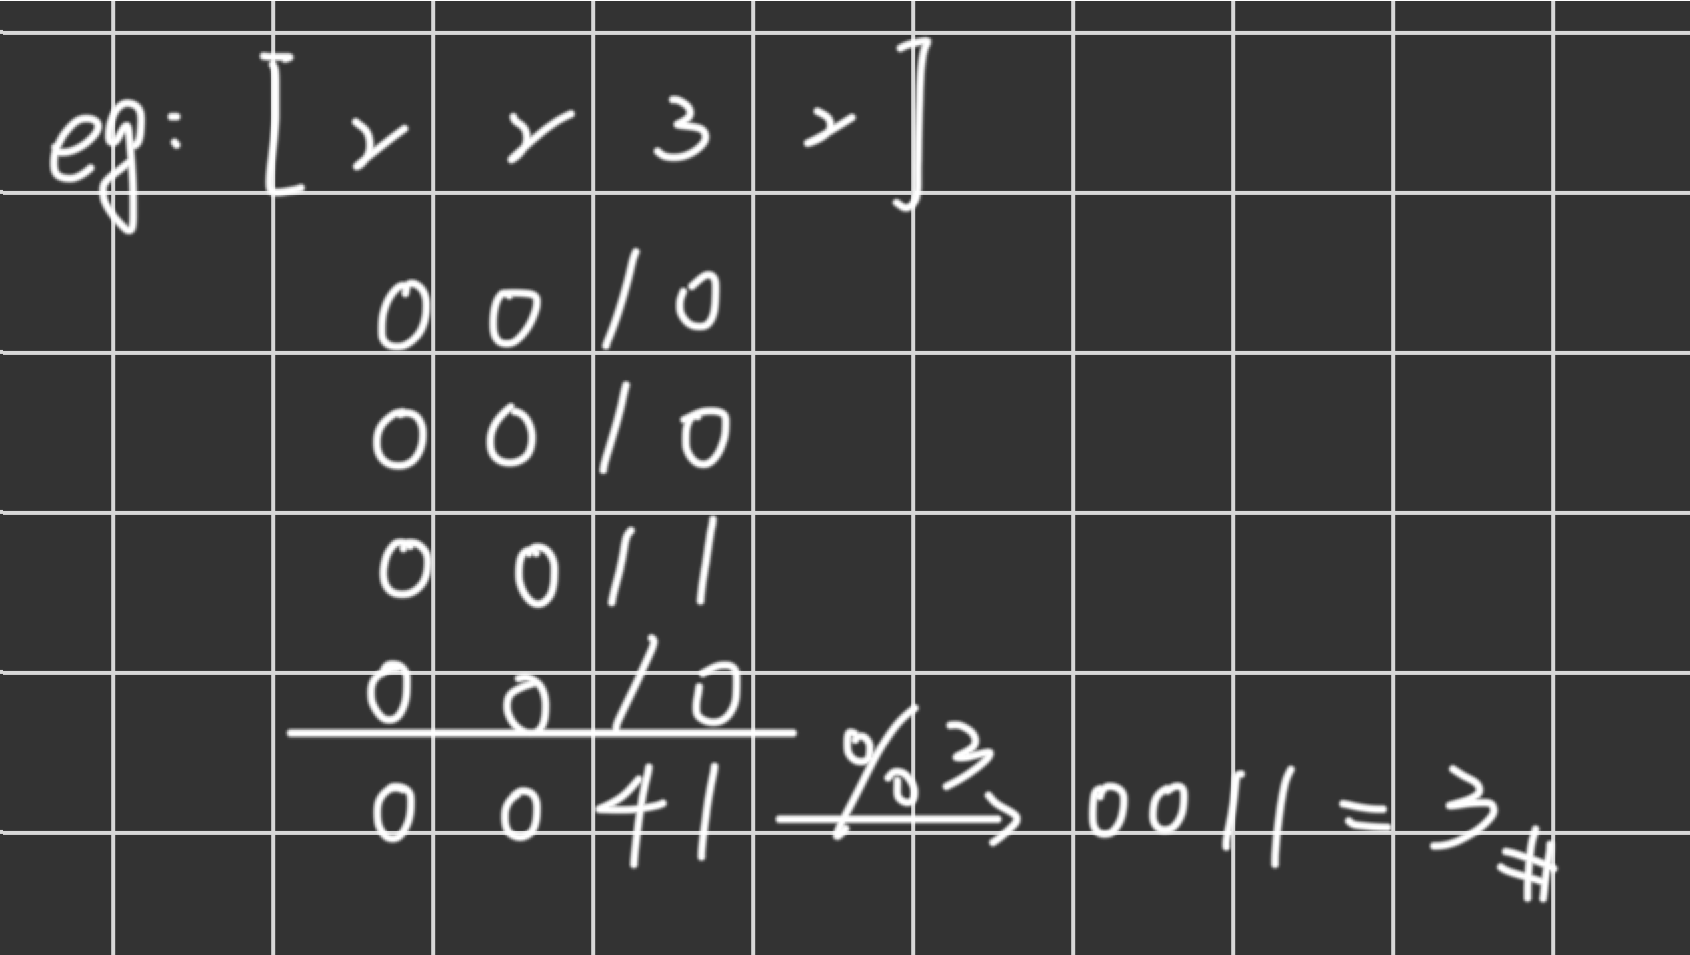 eg: [ 2 2 3 2 ]
0 0 1 0
0 0 1 0
0 0 1 1
0 0 1 0
0 0 4 1 %3 → 0011 = 3 #